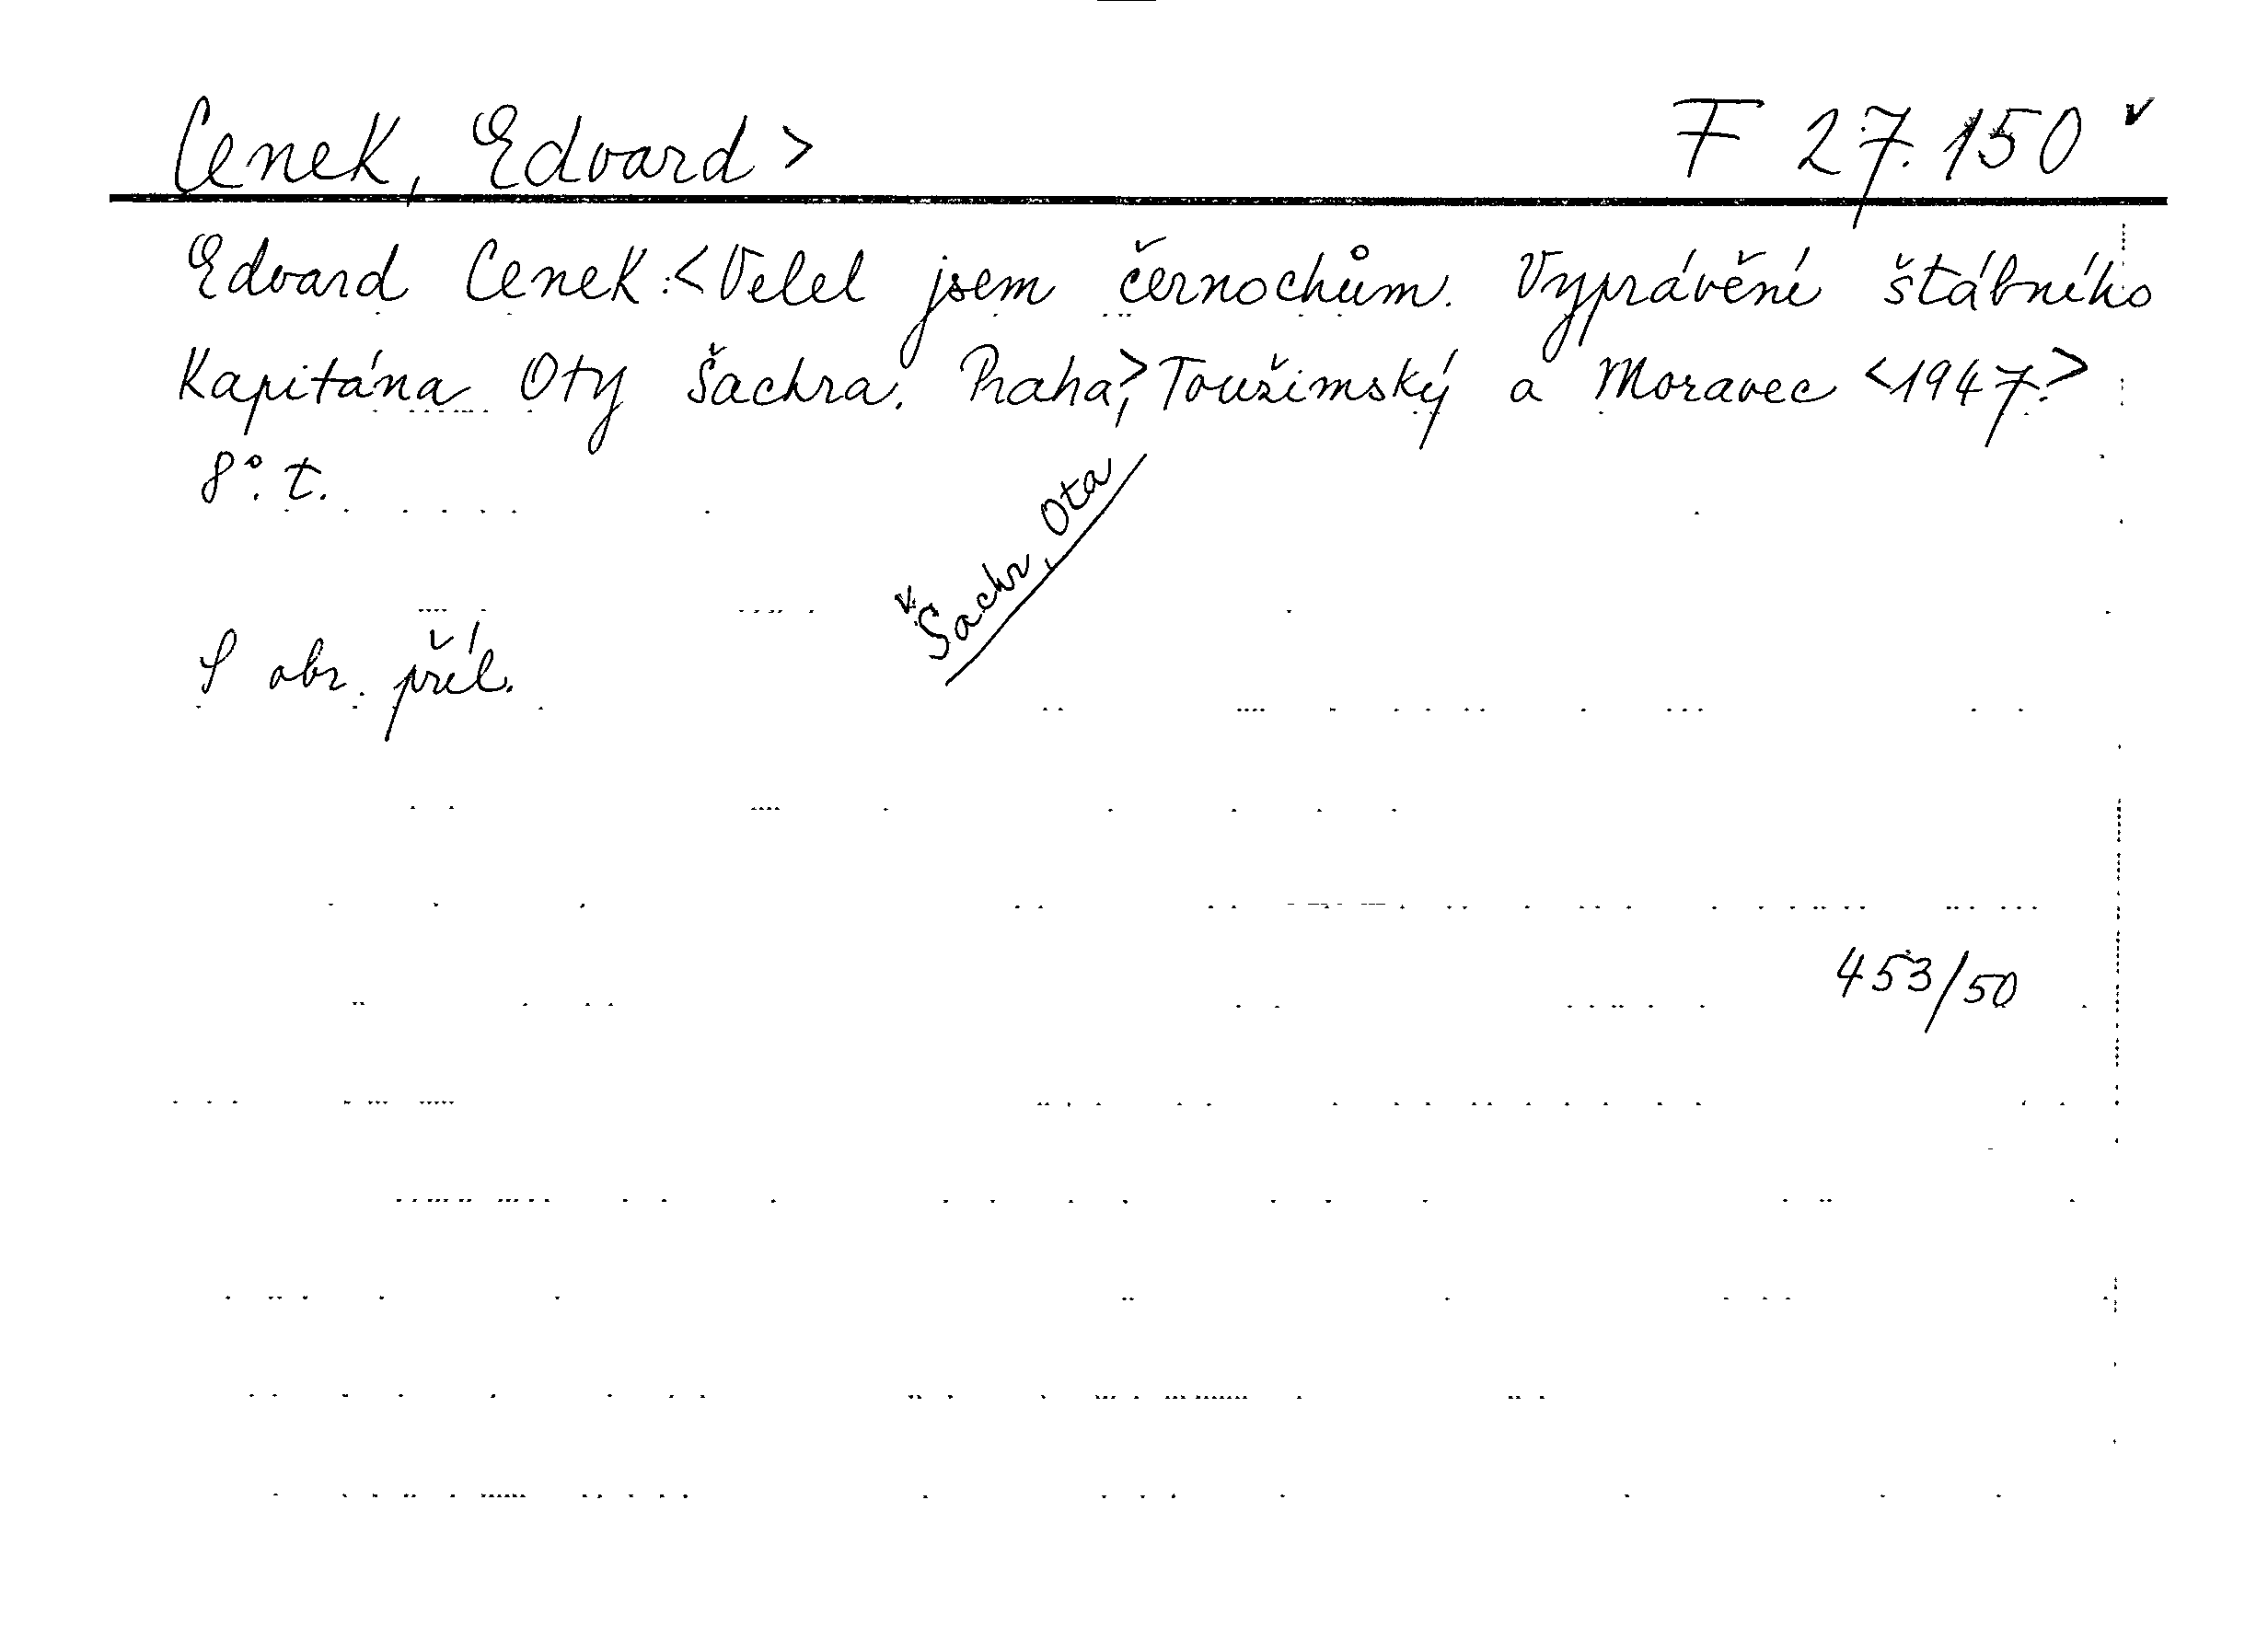 Cenek, Edvard> F 27.150 v
Edvard Cenek:<Velel jsem černochům. Vyprávění štábního
Kapitána Oty Šachra. Praha,> Toužimský a Moravec <1947.>
8°. t.
Šachr, Ota
S obr. příl.
453/50